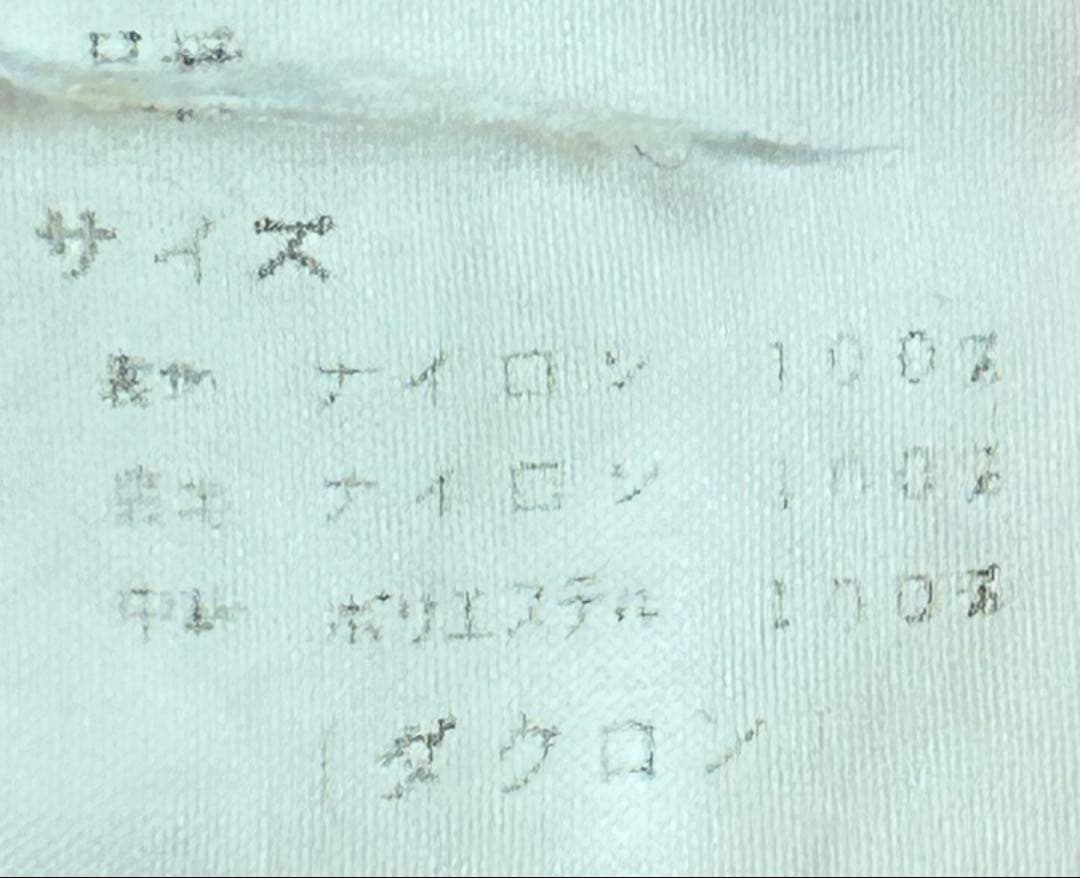 品番
サイズ
表地 ナイロン 100%
裏地 ナイロン 100%
中わた ポリエステル 100%
(ダクロン